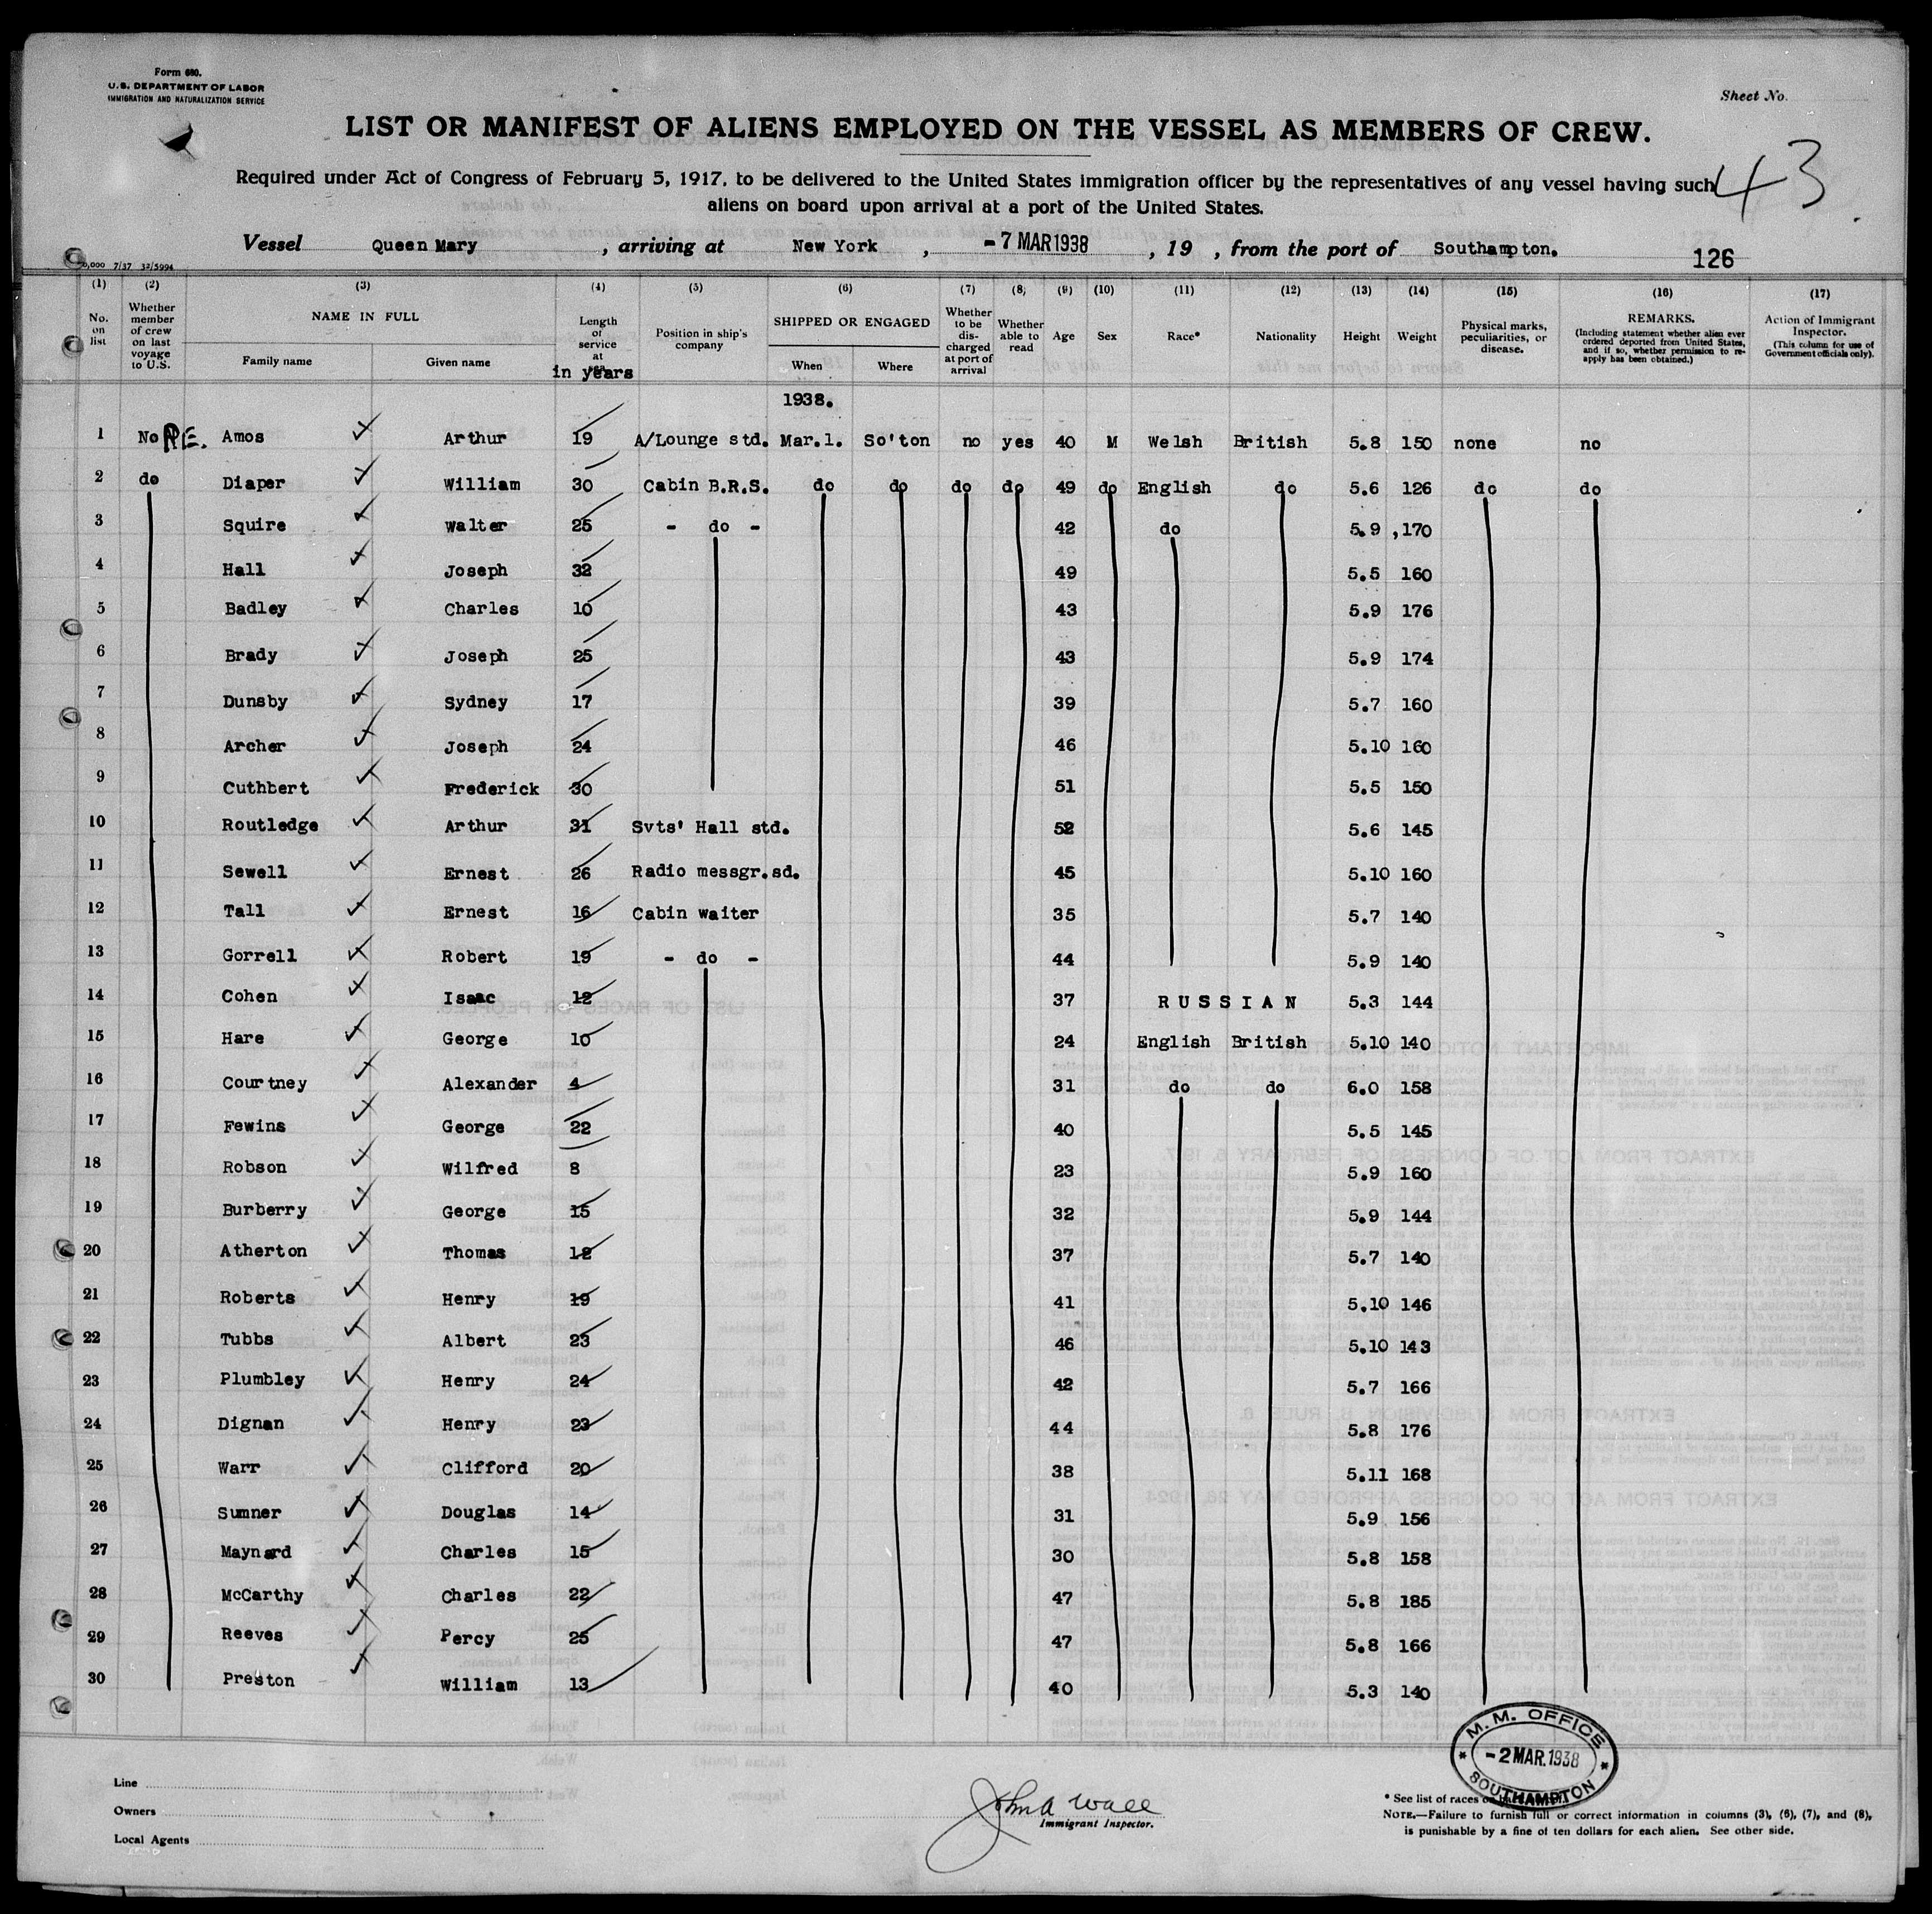 Form 680.
U.S. DEPARTMENT OF LABOR
IMMIGRATION AND NATURALIZATION SERVICE
Sheet No.
LIST OR MANIFEST OF ALIENS EMPLOYED ON THE VESSEL AS MEMBERS OF CREW.
43
Required under Act of Congress of February 5, 1917, to be delivered to the United States immigration officer by the representatives of any vessel having such
aliens on board upon arrival at a port of the United States.
Vessel Queen Mary, arriving at New York, -7 MAR 1938, 19 , from the port of Southampton.
126
0,000 7/37 32/5994
(1) (2) (3) (4) (5) (6) (7) (8) (9) (10) (11) (12) (13) (14) (15) (16) (17)
No. on list
Whether member of crew on last voyage to U.S.
NAME IN FULL
Family name Given name
Length of service at
in years
Position in ship's company
SHIPPED OR ENGAGED
When Where
Whether to be discharged at port of arrival
Whether able to read
Age
Sex
Race*
Nationality
Height
Weight
Physical marks, peculiarities, or disease.
REMARKS.
(Including statement whether alien ever ordered deported from United States, and if so, whether permission to reapply has been obtained.)
Action of Immigrant Inspector.
(This column for use of Government officials only).
1938.
1 No Amos Arthur 19 A/Lounge std. Mar.1. So'ton no yes 40 M Welsh British 5.8 150 none no
2 do Diaper William 30 Cabin B.R.S. do do do do 49 do English do 5.6 126 do do
3 Squire Walter 25 - do - 42 do 5.9 ,170
4 Hall Joseph 32 49 5.5 160
5 Badley Charles 10 43 5.9 176
6 Brady Joseph 25 43 5.9 174
7 Dunsby Sydney 17 39 5.7 160
8 Archer Joseph 24 46 5.10 160
9 Cuthbert Frederick 30 51 5.5 150
10 Routledge Arthur 31 Svts' Hall std. 52 5.6 145
11 Sewell Ernest 26 Radio messgr.sd. 45 5.10 160
12 Tall Ernest 16 Cabin waiter 35 5.7 140
13 Gorrell Robert 19 - do - 44 5.9 140
14 Cohen Isaac 12 37 RUSSIAN 5.3 144
15 Hare George 10 24 English British 5.10 140
16 Courtney Alexander 4 31 do do 6.0 158
17 Fewins George 22 40 5.5 145
18 Robson Wilfred 8 23 5.9 160
19 Burberry George 15 32 5.9 144
20 Atherton Thomas 12 37 5.7 140
21 Roberts Henry 19 41 5.10 146
22 Tubbs Albert 23 46 5.10 143
23 Plumbley Henry 24 42 5.7 166
24 Dignan Henry 23 44 5.8 176
25 Warr Clifford 20 38 5.11 168
26 Sumner Douglas 14 31 5.9 156
27 Maynard Charles 15 30 5.8 158
28 McCarthy Charles 22 47 5.8 185
29 Reeves Percy 25 47 5.8 166
30 Preston William 13 40 5.3 140
M.M. OFFICE
-2 MAR.1938
SOUTHAMPTON
Line
Owners
Local Agents
John A Wall
Immigrant Inspector.
* See list of races
NOTE.—Failure to furnish full or correct information in columns (3), (6), (7), and (8),
is punishable by a fine of ten dollars for each alien. See other side.